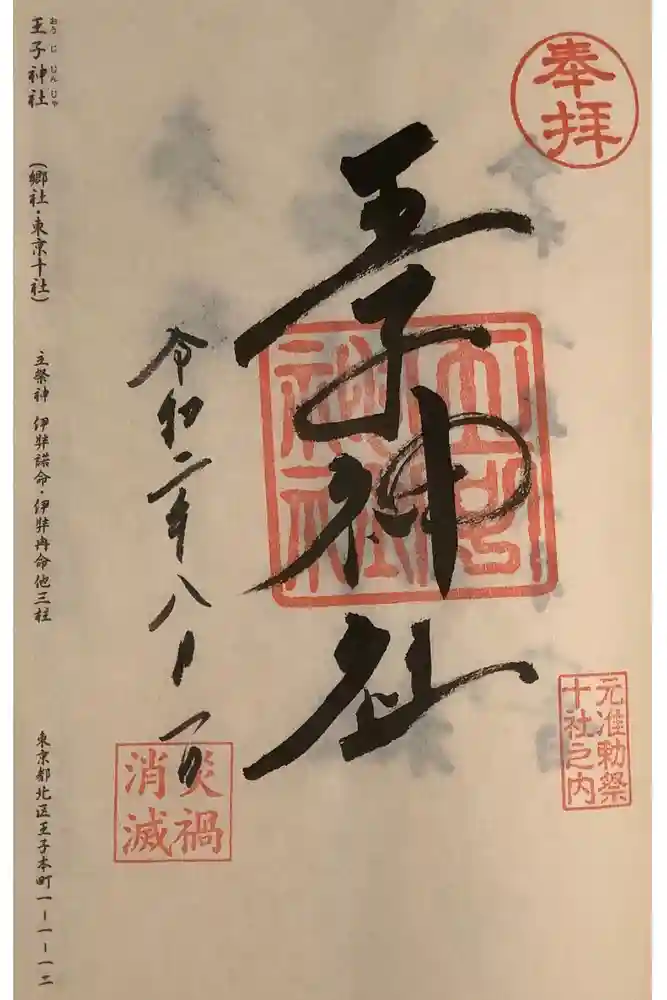 奉拝
王子神社
王子神社
元准勅祭
十社之内
令和二年八月一日
災禍
消滅
王子神社
おうじじんじゃ
(郷社・東京十社)
主祭神 伊弉諾命・伊弉冉命他三柱
東京都北区王子本町一ー一ー一二